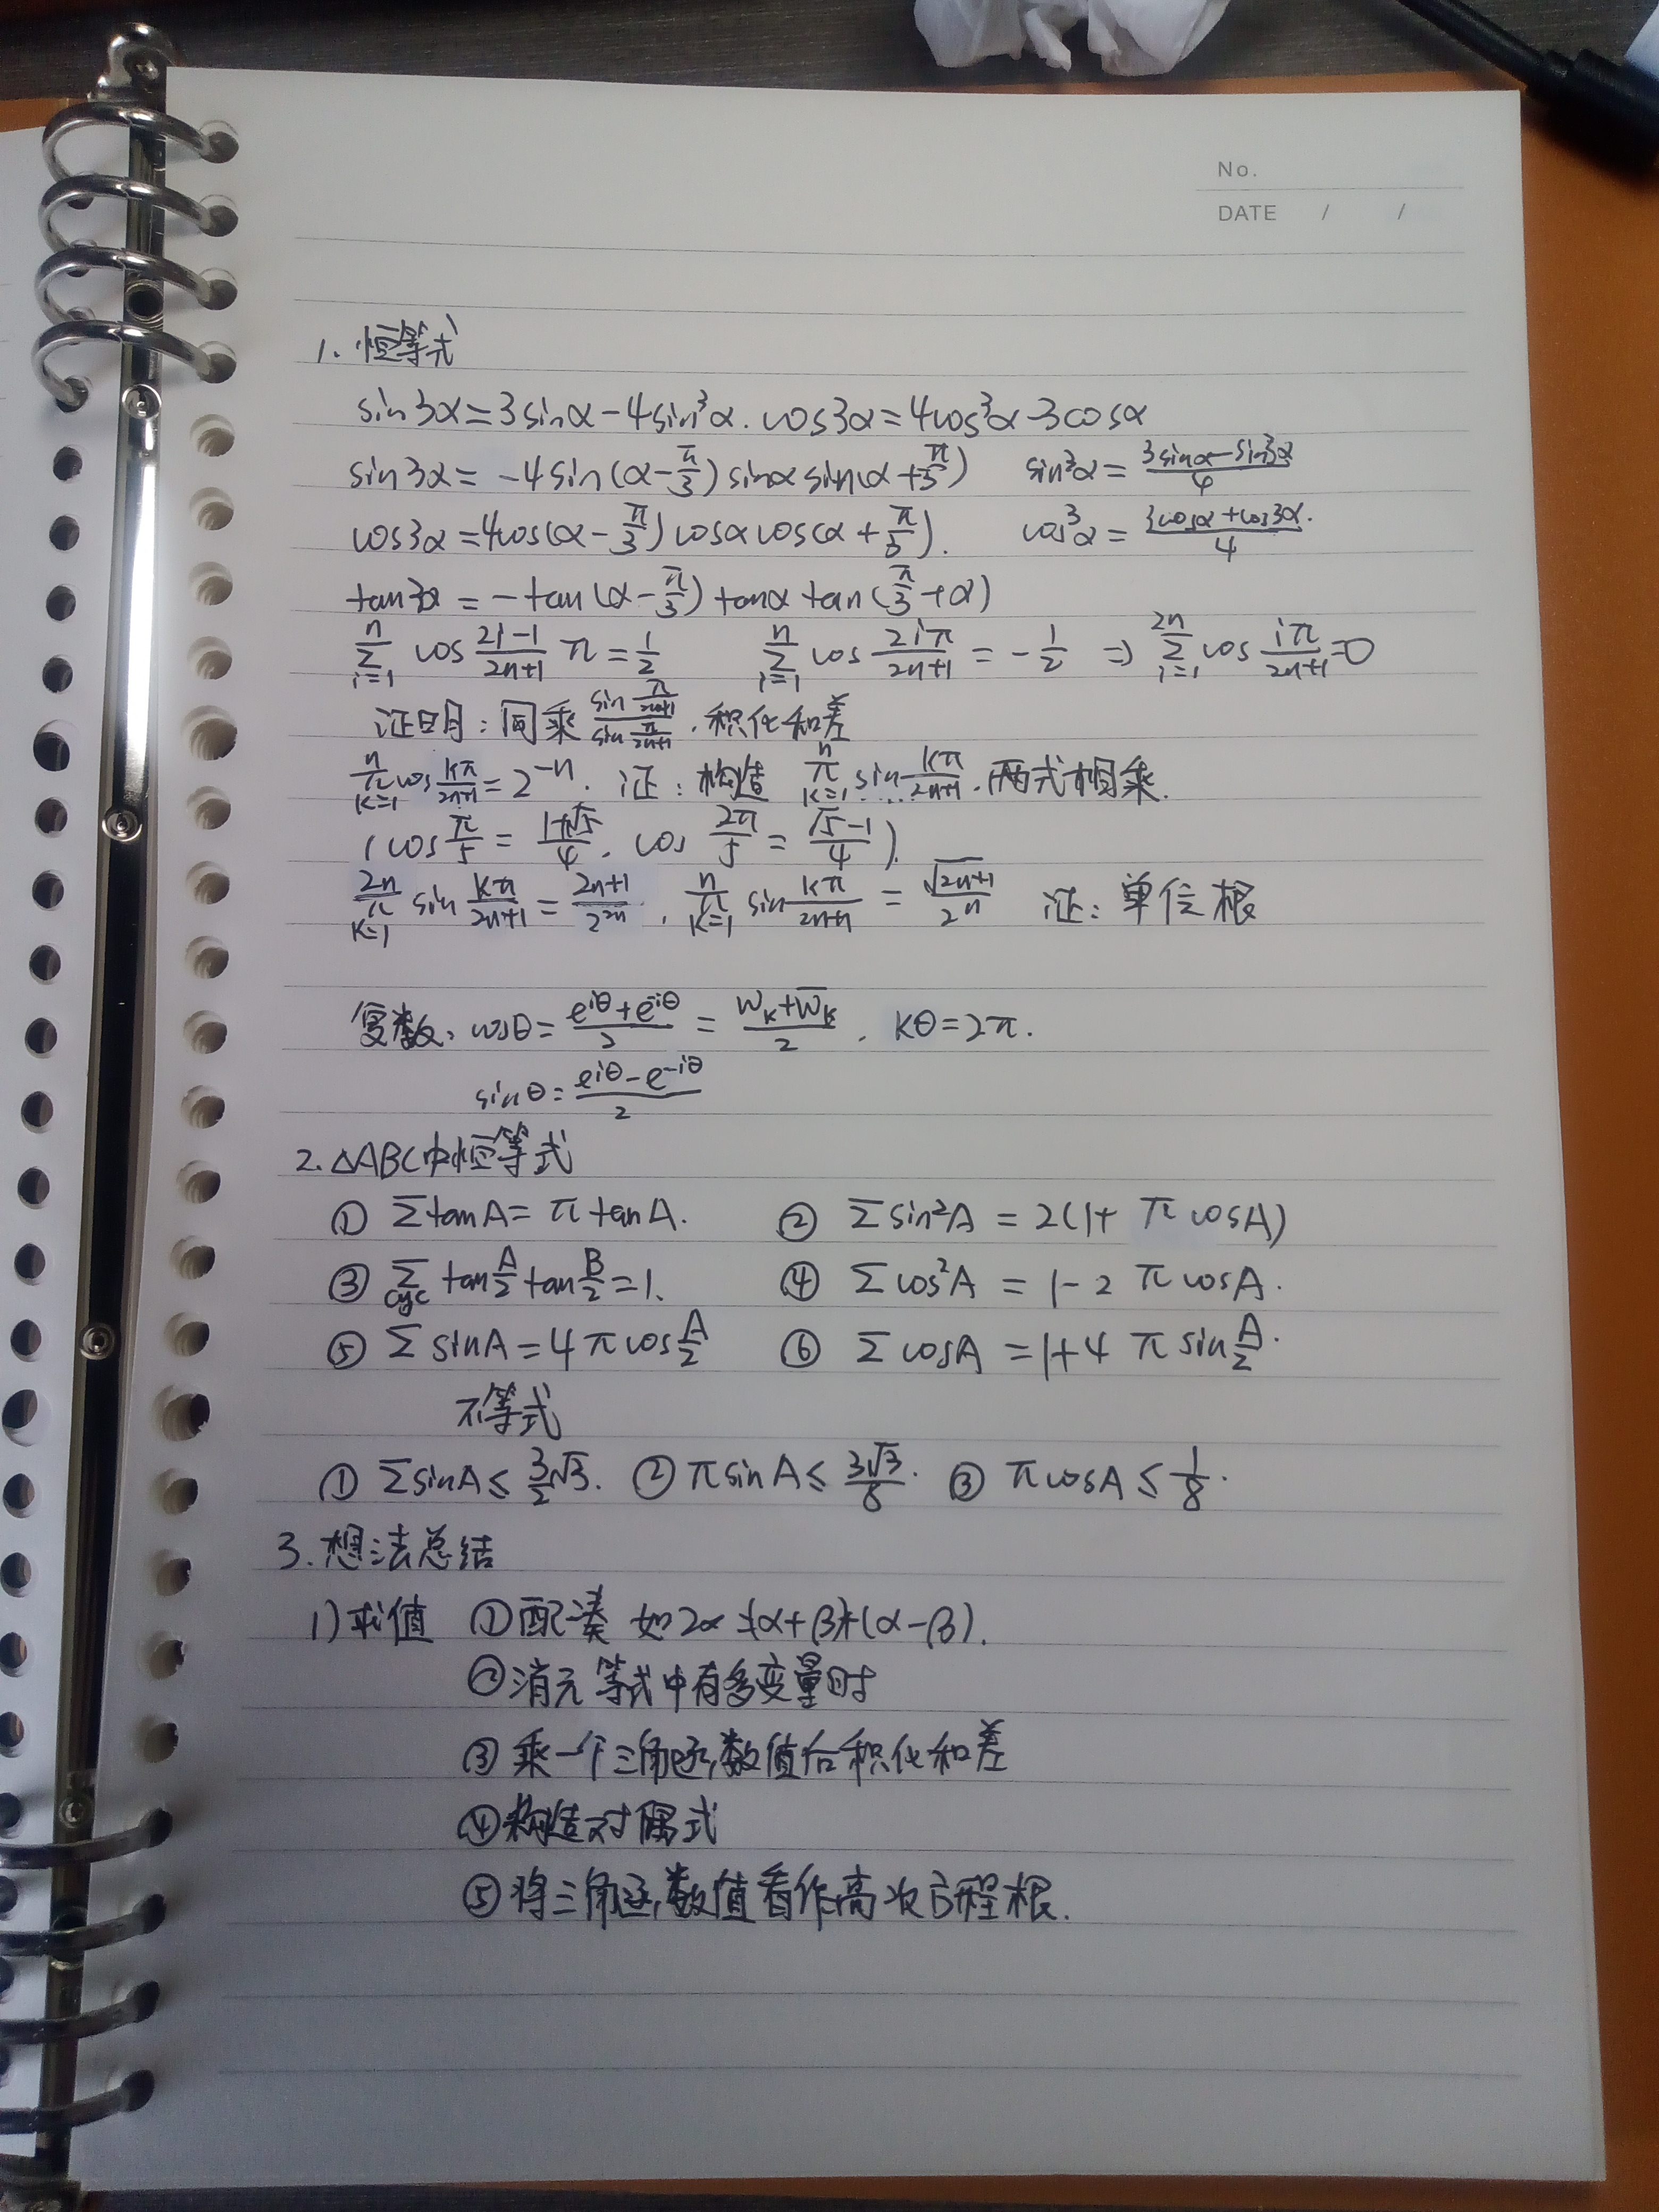 No.
DATE / /
1. 恒等式
sin3α=3sinα-4sin³α. cos3α=4cos³α-3cosα
sin3α= -4sin(α-π/3)sinα sin(α+π/3) sin³α=(3sinα-sin3α)/4
cos3α=4cos(α-π/3)cosαcos(α+π/3). cos³α=(3cosα+cos3α)/4.
tan3α = -tan(α-π/3)tanα tan(π/3+α)
∑_{i=1}^{n} cos (2i-1)/(2n+1) π=1/2 ∑_{i=1}^{n} cos 2iπ/(2n+1) = -1/2 ⇒ ∑_{i=1}^{2n} cos iπ/(2n+1)=0
证明: 同乘 (sin π/(2n+1))/(sin π/(2n+1)). 积化和差
π_{k=1}^{n} cos kπ/(2n+1)=2^{-n}. 证: 构造 π_{k=1}^{n} sin kπ/(2n+1). 两式相乘.
(cos π/5 = (1+√5)/4. cos 2π/5 = (√5-1)/4).
π_{k=1}^{2n} sin kπ/(2n+1) = (2n+1)/2^{2n}. π_{k=1}^{n} sin kπ/(2n+1) = √(2n+1)/2^n 证: 单位根
复数: cosθ=(e^{iθ}+e^{-iθ})/2 = (w_k+w̅_k)/2. kθ=2π.
sinθ=(e^{iθ}-e^{-iθ})/2
2. △ABC中恒等式
① ∑tanA= π tanA. ② ∑sin²A = 2(1+ π cosA)
③ ∑_{cyc} tan A/2 tan B/2=1. ④ ∑cos²A = 1-2 π cosA.
⑤ ∑ sinA=4 π cos A/2 ⑥ ∑ cosA =1+4 π sin A/2.
不等式
① ∑sinA≤ 3/2 √3. ② π sinA ≤ 3√3/8. ③ π cosA ≤ 1/8.
3. 想法总结
1) 求值 ①配凑 如2α=(α+β)+(α-β).
②消元 等式中有多变量时
③ 乘一个三角函数值后积化和差
④构造对偶式
⑤将三角函数值看作高次方程根.